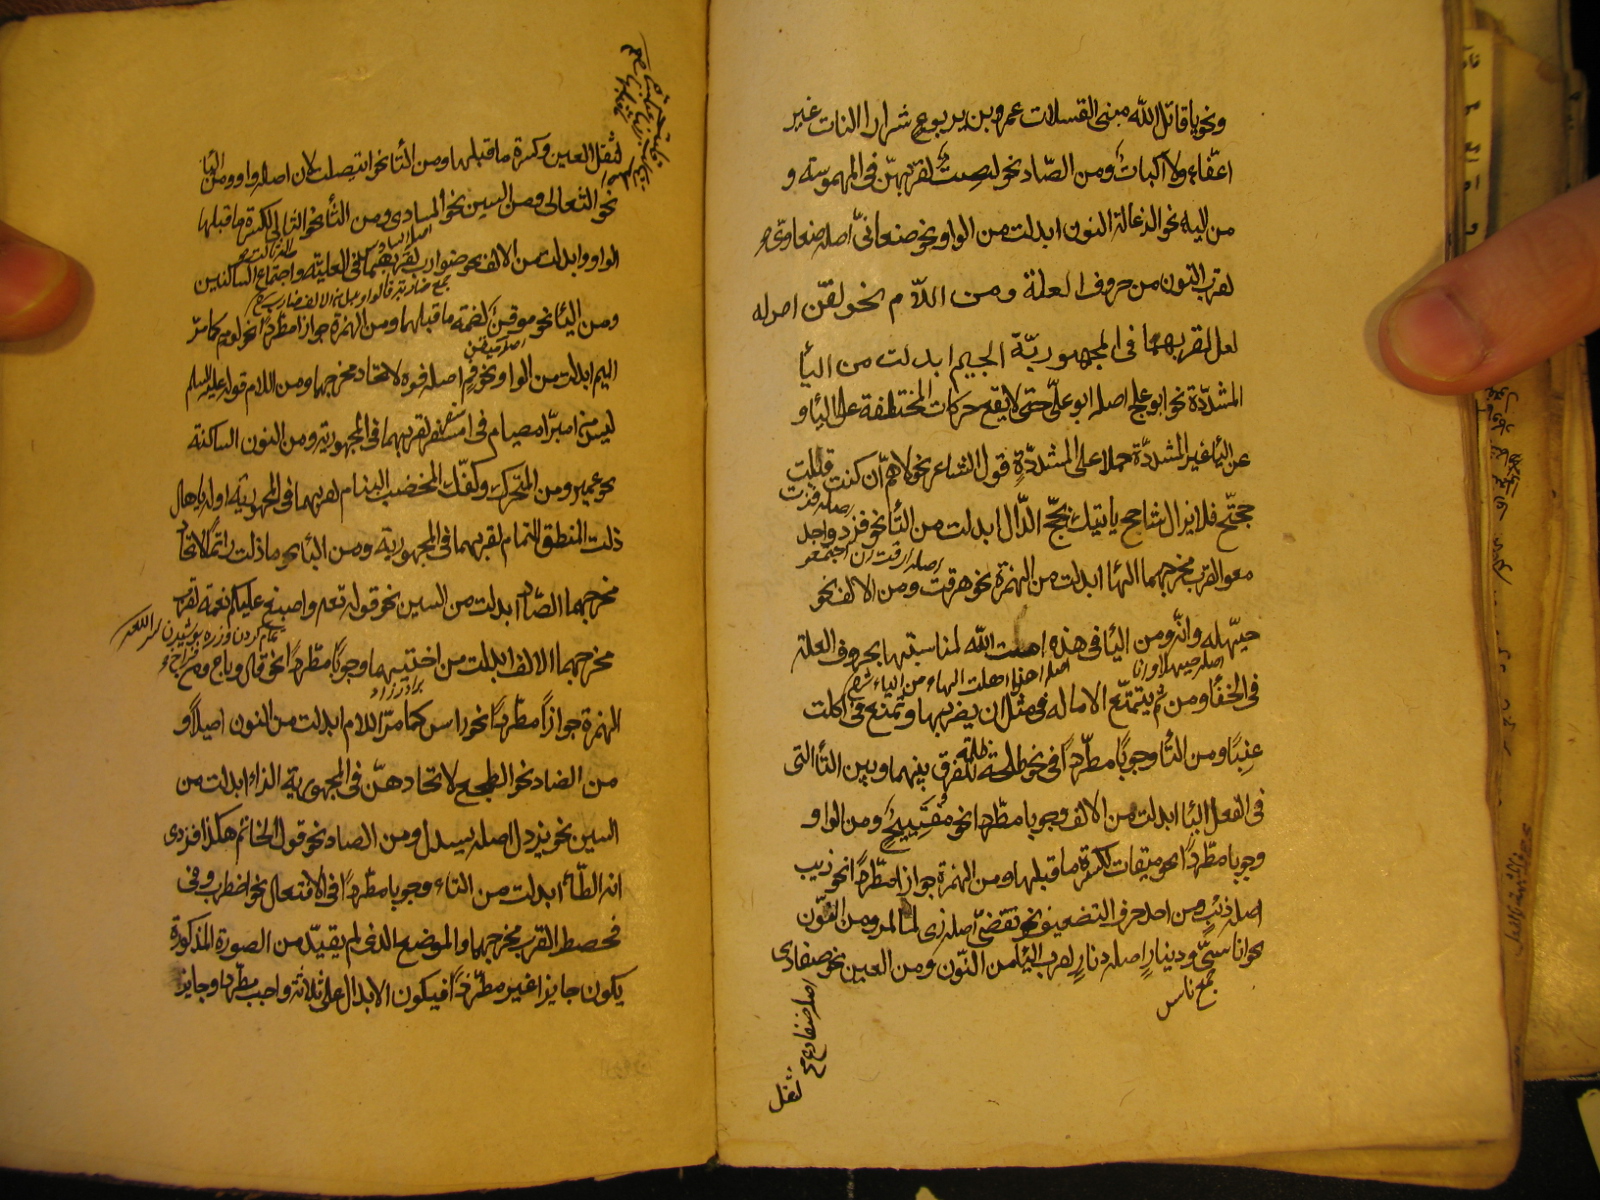 ونحو يا قاتل الله بنى القسلات عمرو بن يربوع شرار النات غير
اعفّاء ولا اكيات ومن الصّاد نحو لصت لقربهنّ فى المهموسة و
من ليه نحو الذعالة النون ابدلت من الواو نحو صنعانىّ اصله صنعاوىّ
لقرب النون من حروف العلة ومن اللام نحو لعنّ اصله
لعل لقربهما فى المجهوريّة الجيم ابدلت من اليأ
المشدّدة نحو ابو علج اصله ابو علىّ حتى لا يقع حركات المختلفة على اليأ و
عن اليأ غير المشدّدة حملا على المشدّدة قول الشاعر نحو لا همّ ان كنت قبلت
اصله فزت
حجتج فلا يزال شاحج ياتيك بج الدّال ابدلت من التأ نحو فزد واجد
اصله ارقت اجتمعو
معو القرب مخرجهما الهأ ابدلت من الهمزة نحو هرقت ومن الالف نحو
حيّهله وانه ومن اليأ فى هذه امة الله لمناسبتها بحروف العلة
اصله حيهلا وانا اصله هذى ابدلت الهاء من الياء
فى الخفأ ومن ثم يمتنع الامالة فى مثل لن يضربها وتمنع فى اكلت
عنبًا ومن التأ وجوبًا مطّردًا فى نحو طلحة للفرق بينهما وبين التأ التى
فى الفعل اليأ ابدلت من الالف وجوبا مطّردا نحو مفتيح ومن الواو
وجوبا مطّردًا نحو ميقات لكسرة ما قبلها ومن الهمزة جوازا مطّردًا نحو ذيب
اصله ذئب ومن احد حرفى التضعيف نحو تقضى اصله زى لما مر ومن النّون
نحو اناسىّ ودينار اصله دنار لقرب اليأ من النّون ومن العين نحو ضفادى
جمع ناس
اصله ضفادع
لثقل
لثقل العين وكسرة ما قبلها ومن التأ نحو ايتصلت لان اصله واو ومن البأ
نحو الثعالى ومن السين نحو السادى ومن الثأ نحو الثالى لكسرة ما قبلها
اصله السادس اصله الثالث
الواو وابدلت من الالف نحو ضوارب لقربهما فى العلية واجتماع الساكنين
ومن اليأ نحو موقن لضمة ما قبلها ومن الهمزة جوازا مطّردا نحو لوم كما مرّ
اصله ميقن
الميم ابدلت من الواو نحو فم اصله فوه لاتحاد مخرجهما ومن اللام قوله عليه السلم
ليس من امبر امصيام فى امسفر لقربهما فى المجهورية ومن النون الساكنة
نحو عمبر ومن المتحركة وكفّك المخضب البنام لقربهما فى المجهورية اوله يا هال
ذات المنطق التمتام لقربهما فى المجهورية ومن البأ نحو ما ذلت راتمًا لاتحاد
مخرجهما الصّاد ابدلت من السين نحو قوله تعم واصبغ عليكم نعمه لقرب
تمام كردن وزره پوشيدن
مخرجهما الالف ابدلت من اختيها وجوبًا مطّردًا نحو قال وباع ومن
الهمزة جوازًا مطّردًا نحو راس كما مرّ اللام ابدلت من النون اصيلال و
من الضاد نحو الطجع لاتحادهنّ فى المجهورية الزاء ابدلت من
السين نحو يزدل اصله يسدل ومن الصاد نحو قول الخاتم هكذا فزدى
انه الطّأ ابدلت من التاء وجوبا مطّردًا فى الافتعال نحو اضطرب وفى
فحصط لقرب مخرجهما والموضع الذى لم يقيّد من الصورة المذكورة
يكون جايزا غير مطّرد فيكون الابدال على ثلاثة واجب مطّرد وجايز